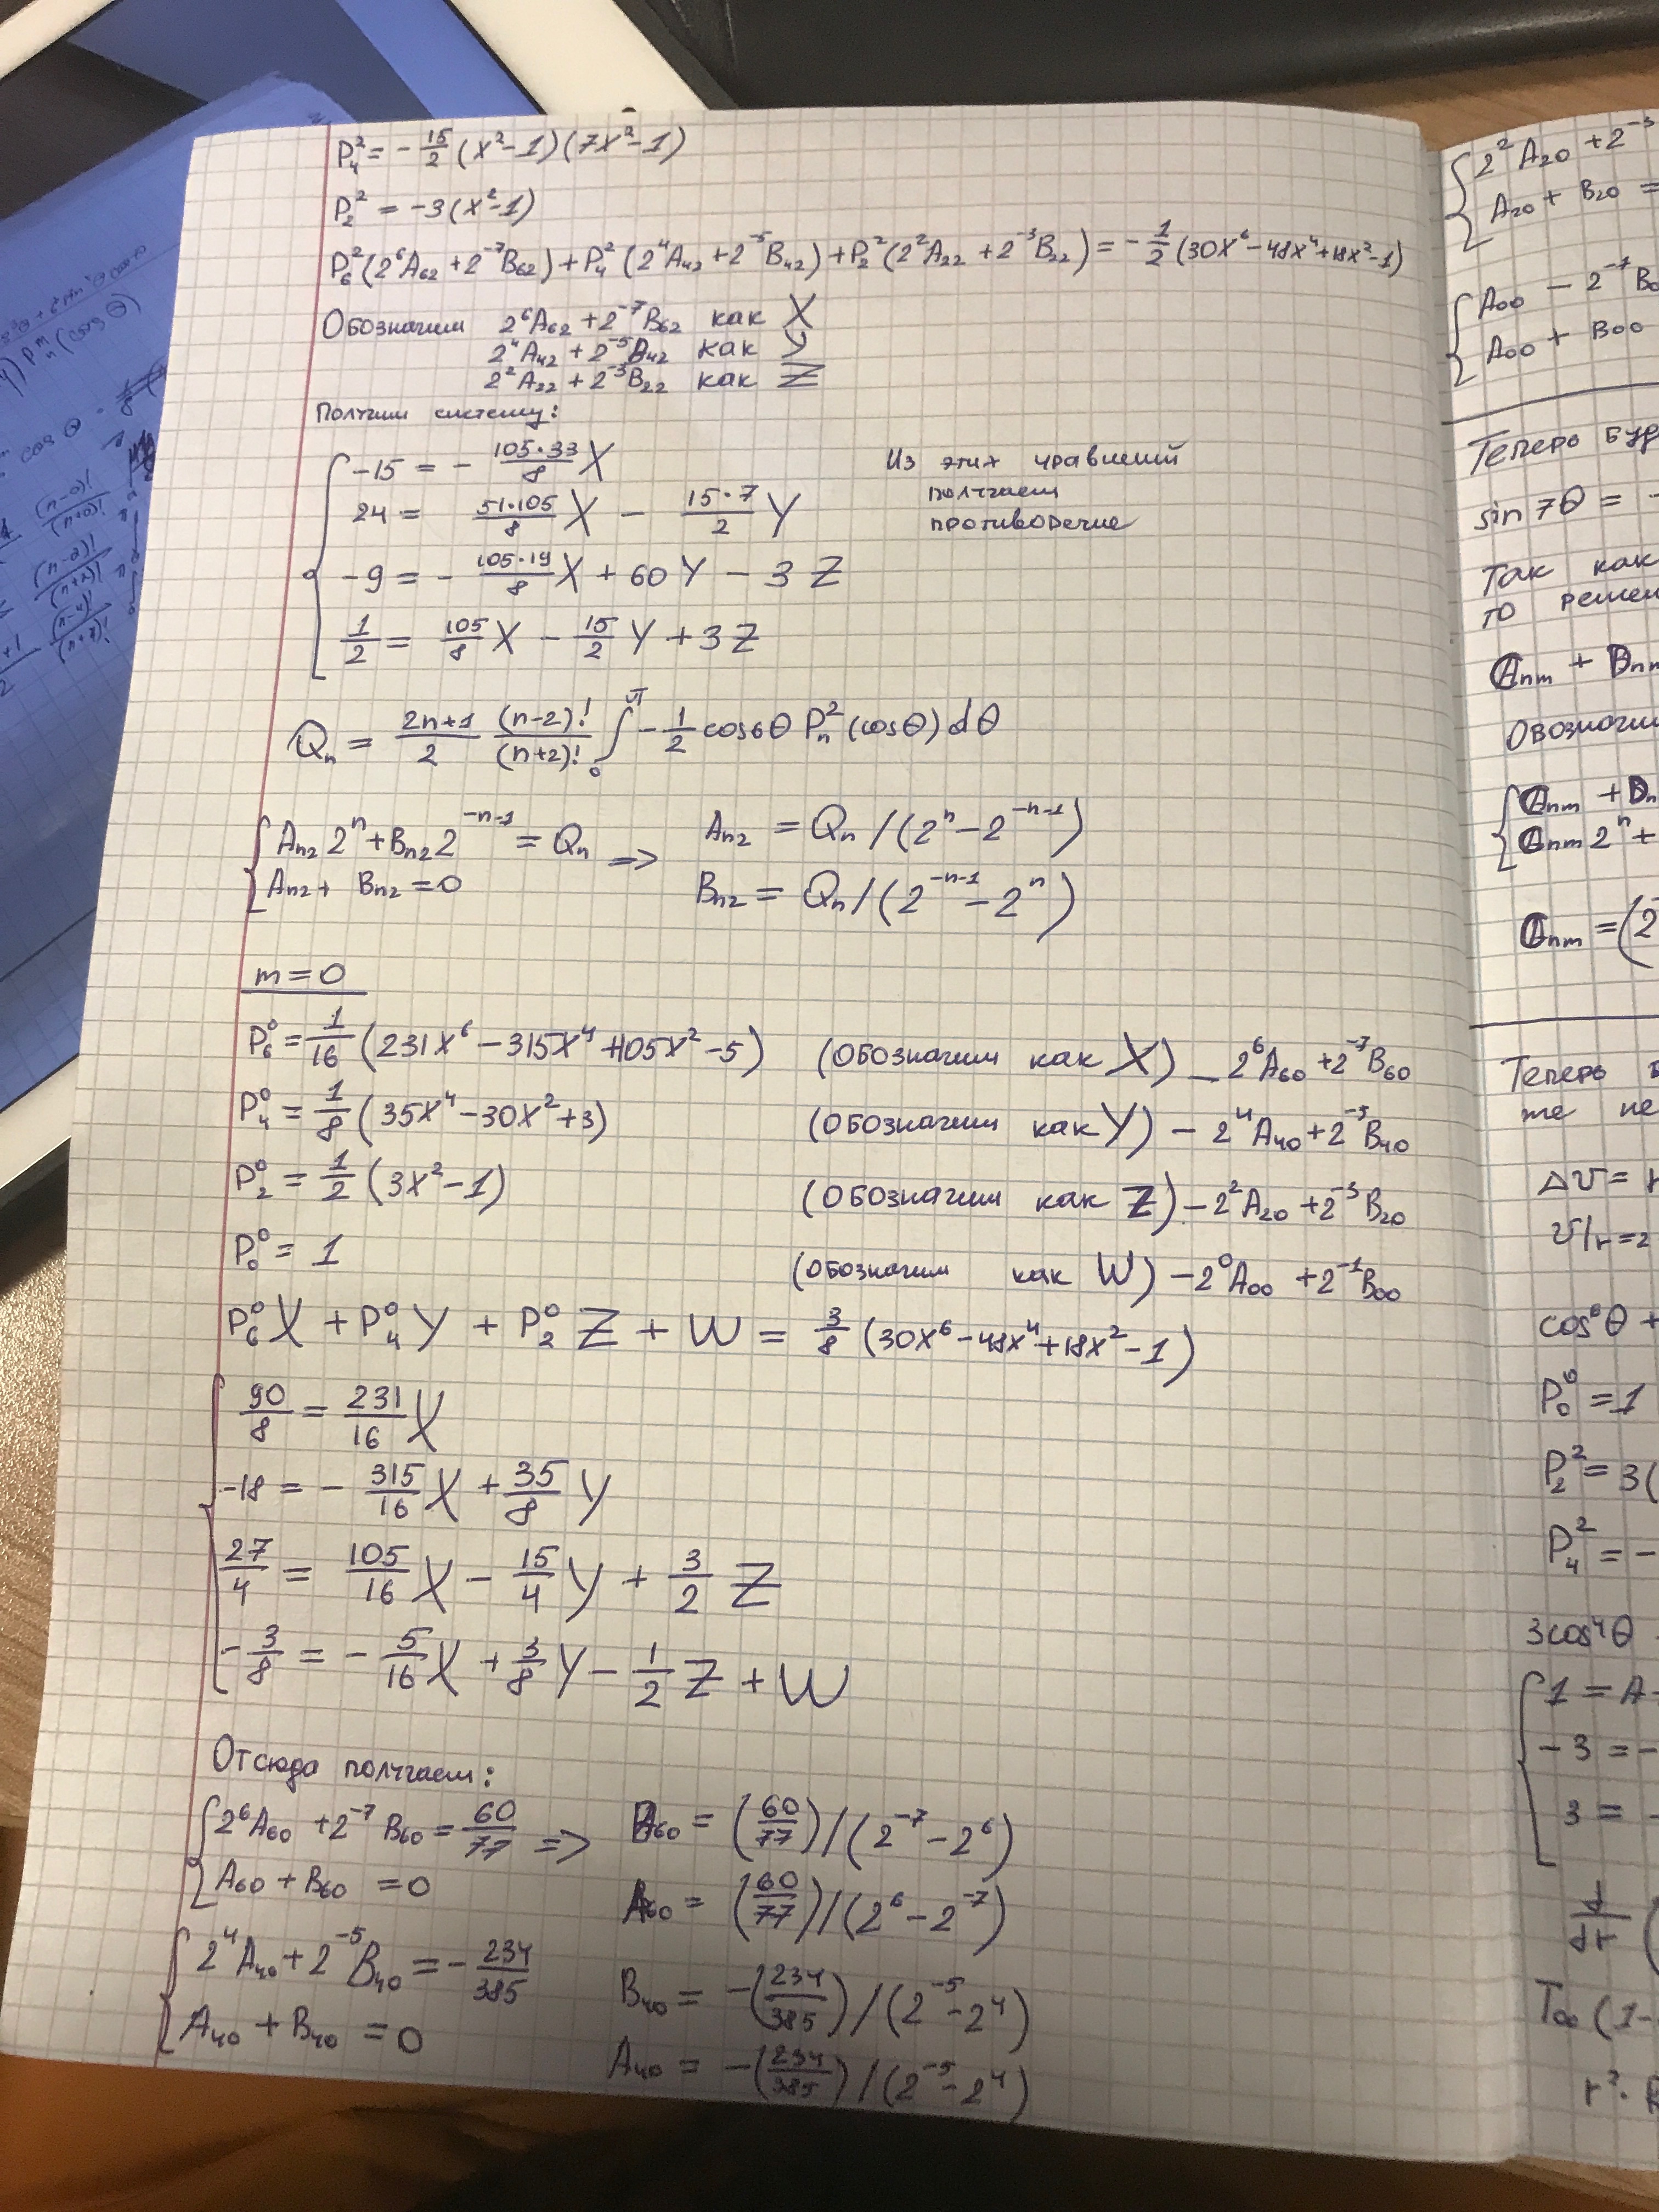 P₄² = - 15/2 (x²-1)(7x²-1)
P₂² = -3(x²-1)
P₆²(2⁶A₆₂ + 2⁻⁷B₆₂) + P₄²(2⁴A₄₂ + 2⁻⁵B₄₂) + P₂²(2²A₂₂ + 2⁻³B₂₂) = - 1/2 (30x⁶ - 48x⁴ + 18x² - 1)
Обозначим 2⁶A₆₂ + 2⁻⁷B₆₂ как X
2⁴A₄₂ + 2⁻⁵B₄₂ как Y
2²A₂₂ + 2⁻³B₂₂ как Z
Получим систему:
-15 = - 105·33/8 X
24 = 51·105/8 X - 15·7/2 Y
-9 = - 105·19/8 X + 60Y - 3Z
1/2 = 105/8 X - 15/2 Y + 3Z
Из этих уравнений
получаем
противоречие
Qₙ = 2n+1/2 (n-2)!/(n+2)! ∫₀^π - 1/2 cos6θ Pₙ²(cosθ)dθ
Aₙ₂2ⁿ + Bₙ₂2⁻ⁿ⁻¹ = Qₙ => Aₙ₂ = Qₙ/(2ⁿ - 2⁻ⁿ⁻¹)
Aₙ₂ + Bₙ₂ = 0 Bₙ₂ = Qₙ/(2⁻ⁿ⁻¹ - 2ⁿ)
m = 0
P₆⁰ = 1/16 (231x⁶ - 315x⁴ + 105x² - 5) (обозначим как X) - 2⁶A₆₀ + 2⁻⁷B₆₀
P₄⁰ = 1/8 (35x⁴ - 30x² + 3) (обозначим как Y) - 2⁴A₄₀ + 2⁻⁵B₄₀
P₂⁰ = 1/2 (3x² - 1) (обозначим как Z) - 2²A₂₀ + 2⁻³B₂₀
P₀⁰ = 1 (обозначим как W) - 2⁰A₀₀ + 2⁻¹B₀₀
P₆⁰X + P₄⁰Y + P₂⁰Z + W = 3/8 (30x⁶ - 48x⁴ + 18x² - 1)
90/8 = 231/16 X
-18 = - 315/16 X + 35/8 Y
27/4 = 105/16 X - 15/4 Y + 3/2 Z
- 3/8 = - 5/16 X + 3/8 Y - 1/2 Z + W
Отсюда получаем:
2⁶A₆₀ + 2⁻⁷B₆₀ = 60/77 => B₆₀ = (60/77)/(2⁻⁷ - 2⁶)
A₆₀ + B₆₀ = 0 A₆₀ = (60/77)/(2⁶ - 2⁻⁷)
2⁴A₄₀ + 2⁻⁵B₄₀ = - 234/385 B₄₀ = -(234/385)/(2⁻⁵ - 2⁴)
A₄₀ + B₄₀ = 0 A₄₀ = -(234/385)/(2⁻⁵ - 2⁴)
2²A₂₀ + 2⁻³
A₂₀ + B₂₀ =
A₀₀ - 2⁻¹B₀
A₀₀ + B₀₀
Теперь
sin7θ = -
Так как
то
Обозначим
Теперь
же не
P₀⁰ = 1
P₂² = 3(
P₄² = -
3cos⁴θ
1 = A
-3 = -
3 = -
d/dr (
T₀₀ (1-